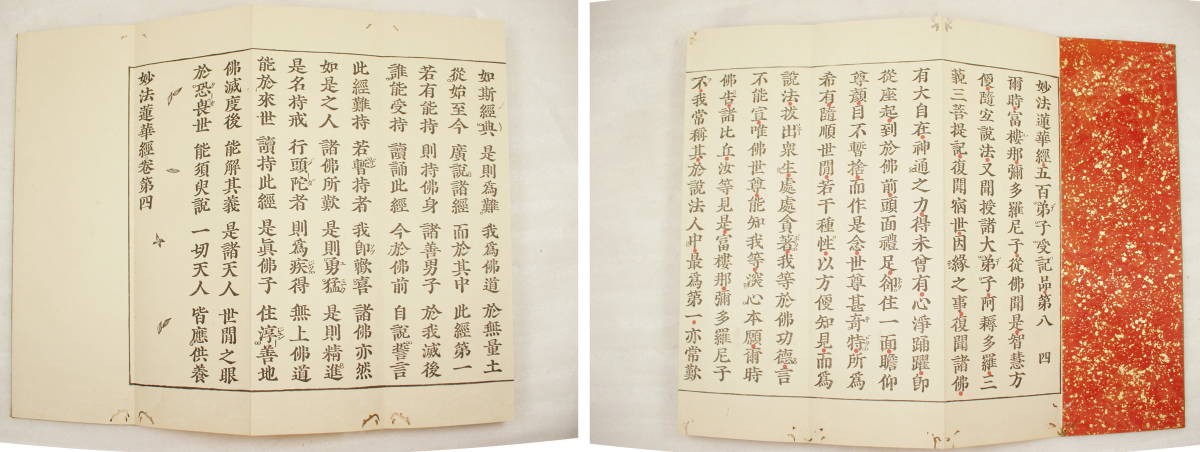 妙法蓮華經五百弟子受記品第八 四
爾時富樓那彌多羅尼子從佛聞是智慧方
便隨宜說法又聞授諸大弟子阿耨多羅三
藐三菩提記復聞宿世因緣之事復聞諸佛
有大自在神通之力得未曾有心淨踊躍卽
從座起到於佛前頭面禮足卻住一面瞻仰
尊顏目不暫捨而作是念世尊甚奇特所爲
希有隨順世閒若干種性以方便知見而爲
說法拔出衆生處處貪著我等於佛功德言
不能宣唯佛世尊能知我等深心本願爾時
佛告諸比丘汝等見是富樓那彌多羅尼子
不我常稱其於說法人中最爲第一亦常歎
如斯經典 是則爲難 我爲佛道 於無量土
從始至今 廣說諸經 而於其中 此經第一
若有能持 則持佛身 諸善男子 於我滅後
誰能受持 讀誦此經 今於佛前 自說誓言
此經難持 若暫持者 我卽歡喜 諸佛亦然
如是之人 諸佛所歎 是則勇猛 是則精進
是名持戒 行頭陀者 則爲疾得 無上佛道
能於來世 讀持此經 是眞佛子 住淳善地
佛滅度後 能解其義 是諸天人 世閒之眼
於恐畏世 能須臾說 一切天人 皆應供養
妙法蓮華經卷第四